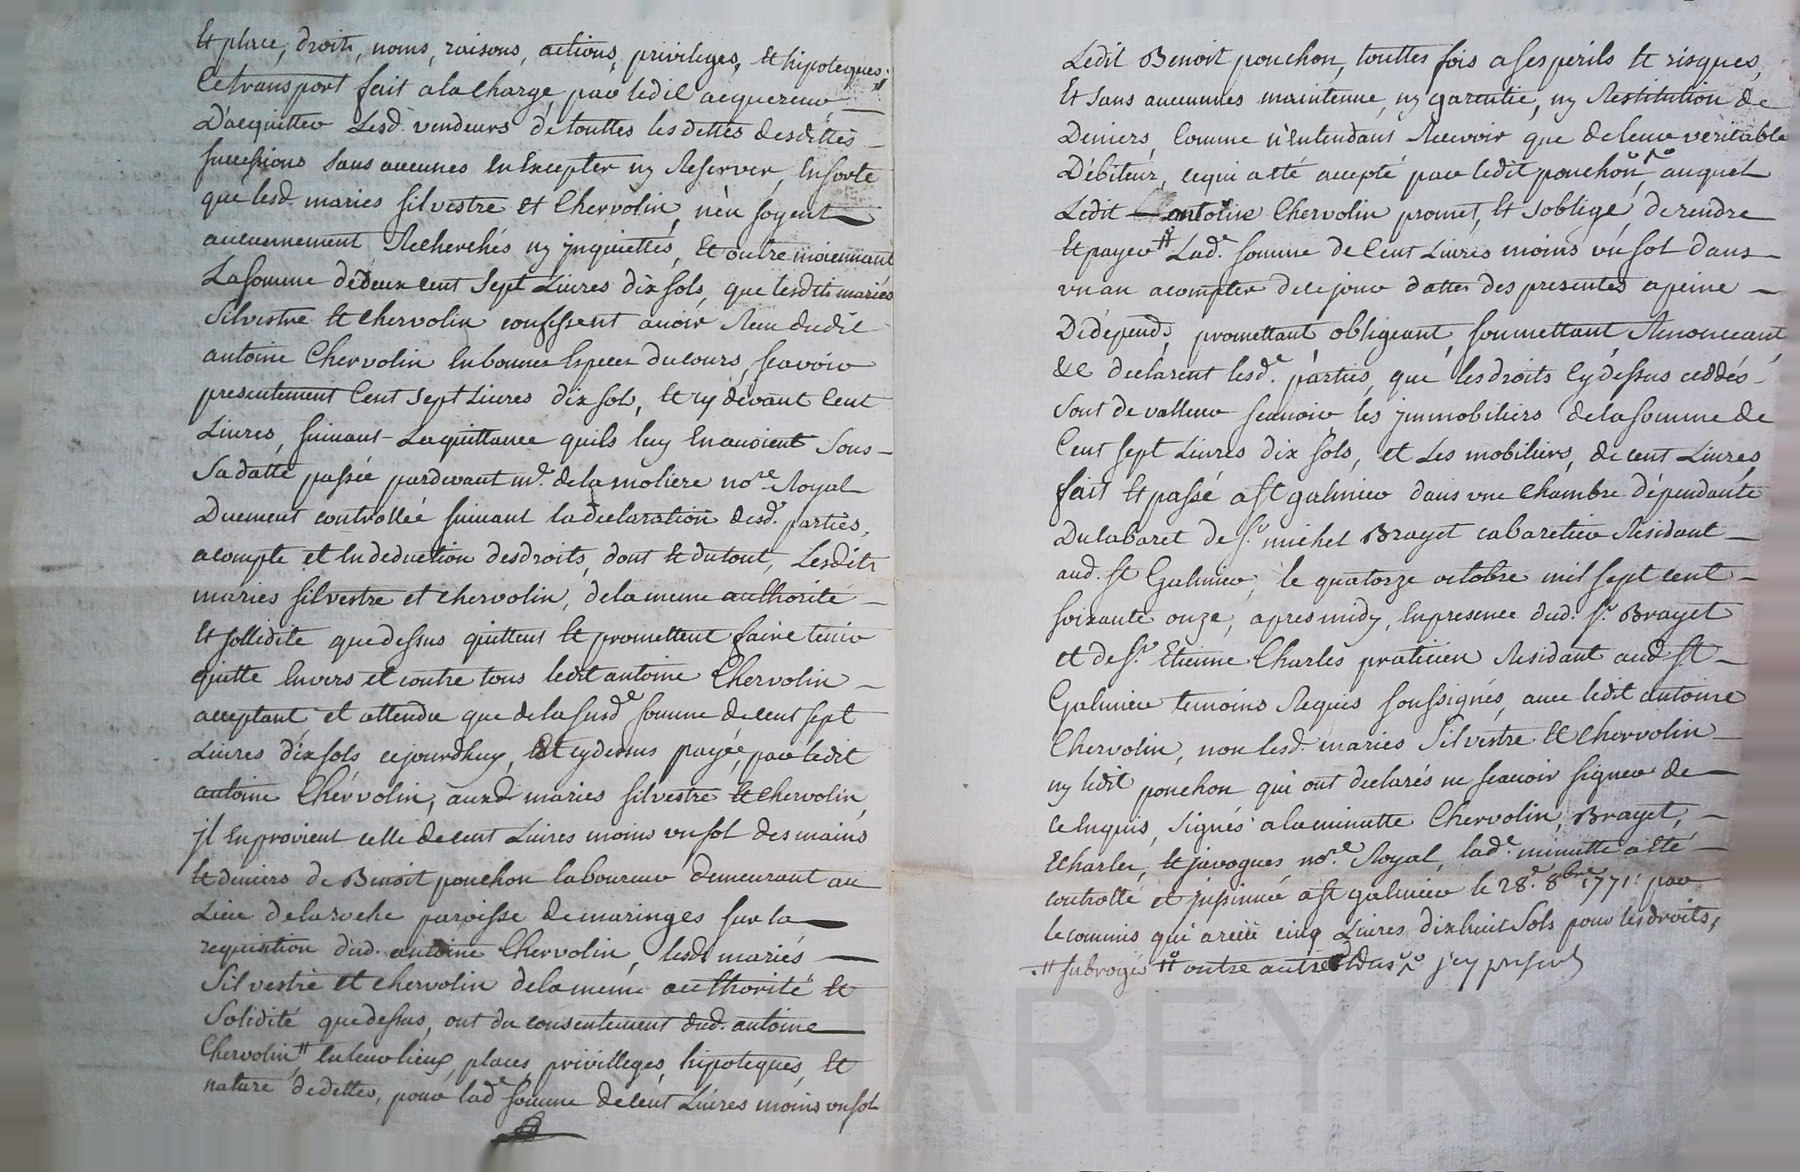 Et place, droits, noms, raisons, actions, privileges, Et hipoteques.
Ce transport fait a la Charge, par ledit acquereur
D'acquitter Lesd. vendeurs de touttes les dettes desdittes
successions sans aucunes En Excepter ny Reserver, En sorte
que lesd. maries silvestre Et Chervolin, n'en soyent
aucunement Recherchés ny jnquiettés, Et outre moiennant
La somme de deux cent sept Livres dix sols, que lesdits mariés
Silvestre Et Chervolin confessent avoir Receu dudit
antoine Chervolin En bonnes Especes du cours, scavoir
presentement Cent sept Livres dix sols, Et cy devant Cent
Livres, suivant La quittance quils luy En avoient sous
sa datte passée pardevant me. de la moliere nore. Royal
Duement controllée suivant la declaration desd. parties,
acompte et En deduction desdroits, dont Et du tout, Lesdits
maries silvestre et chervolin, de la meme authorité
Et sollidité que dessus quittent Et promettent faire tenir
quitte Envers et contre tous ledit antoine Chervolin
acceptant, et attendu que de la susde. somme de cent sept
Livres dix sols cejourdhuy, Et cydessus payée, par ledit
antoine Chervolin, auxd. maries silvestre Et chervolin,
jl En provient celle de cent Livres moins un sol des mains
Et deniers de Benoit ponchon laboureur demeurant au
Lieu de la roche paroisse de maringes sur la
requisition dud. antoine Chervolin, lesd. mariés
Silvestre et chervolin de la meme authorité Et
Solidité que dessus, ont du consentement dud. antoine
Chervolin # En leur lieux, places, privilleges, hipoteques, Et
nature de dettes, pour lade. somme de cent Livres moins un sol
Ledit Benoit ponchon, touttes fois a ses perils Et risques,
Et sans aucunnes maintenue, ny garentie, ny Restitution de
Deniers, Comme n'Entendant Recevoir que de leur veritable
Débiteur, cequi a été accepté par ledit ponchon, auquel
Ledit antoine Chervolin promet, Et soblige, de rendre
Et payer # Lade. somme de Cent Livres moins un sol dans
un an acompter de ce jour datte des presentes a peine
De dépends, promettant, obligeant, soumettant, Renonceant,
&c declarent lesde. parties, que les droits Cy dessus ceddés
sont de valleur scavoir les jmmobiliers de la somme de
Cent sept Livres dix sols, et Les mobiliers, de cent Livres,
fait Et passé a st galmier dans une Chambre dépendante
Du Cabaret de sr. michel Brayet cabaretier Residant
aud. st Galmier, le quatorze octobre mil sept cent
soixante onze, apres midy, En presence dud. sr. Brayet
et de sr. Etienne Charles praticien Residant aud. st
Galmier temoins Requis soussignés, avec ledit antoine
Chervolin, non lesd. maries Silvestre Et Chervolin
ny ledit ponchon qui ont declarés ne scavoir signer de
ce Enquis, signés a la minutte Chervolin, Brayet,
Charles, Et javogues nore. Royal, lade. minutte a Eté
controllé et jnsinué a st galmier le 28e. 8bre 1771. par
le commis qui a reçu cinq Livres dix huit sols pour les droits,
# subrogé # outre autre